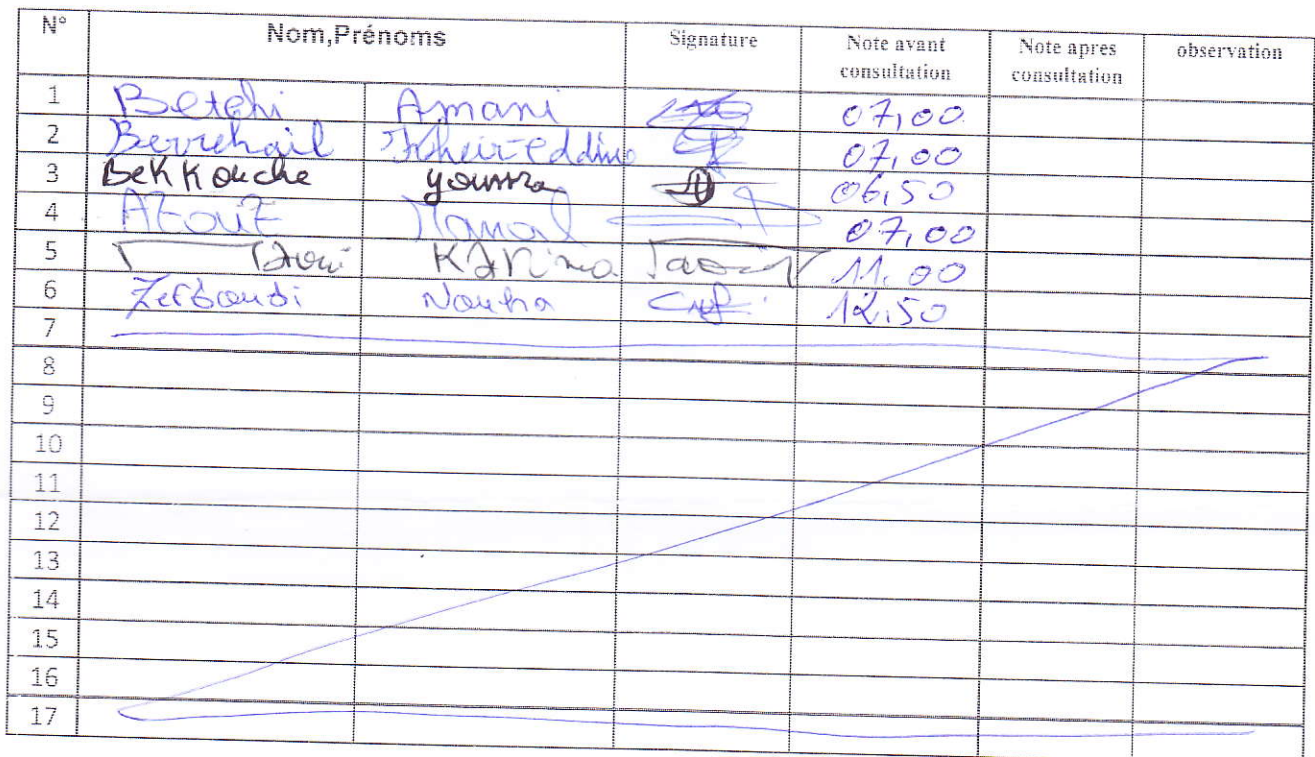 N° Nom,Prénoms Signature Note avant consultation Note apres consultation observation
1 Betchi Amani 07,00
2 Berrehail Kheir-eddine 07,00
3 BeKKouche youssra 06,50
4 Atout Manal 07,00
5 Karima 11.00
6 Zerboudi Nouha 12.50
7
8
9
10
11
12
13
14
15
16
17